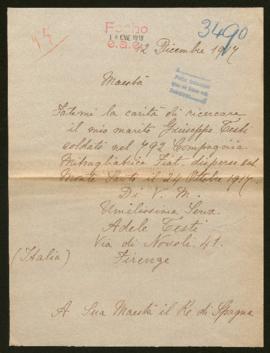 3490
44
Fecho
12 Dicembre 1917
Maestà
Fatemi la carità di ricercare
il mio marito Giuseppe Testi
soldato nel 492 Compagnia
Mitragliatrici Fiat, disperso sul
Monte Santo il 24 Ottobre 1917
Di V. M.
Umilissima Serva
Adele Testi
Via di Novoli 41.
(Italia)
Firenze
A Sua Maestà il Re di Spagna